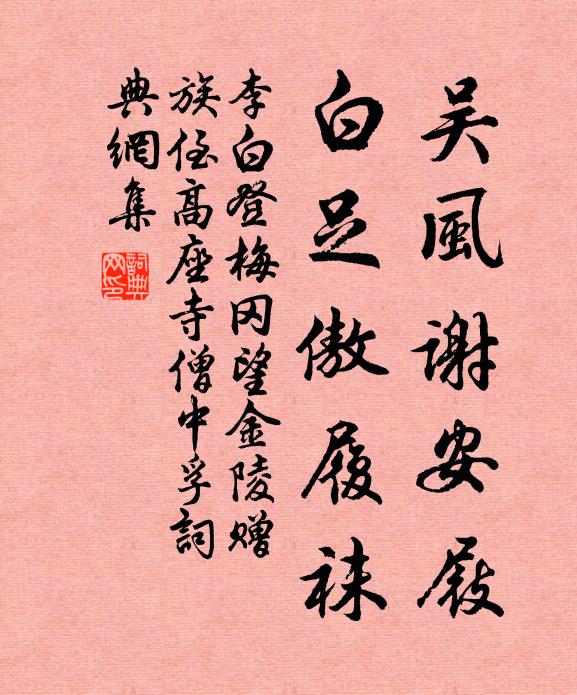 吴風謝安屐
白足傲履袜
李白登梅冈望金陵赠
族侄高座寺僧中孚詞
典網集
詞典网印